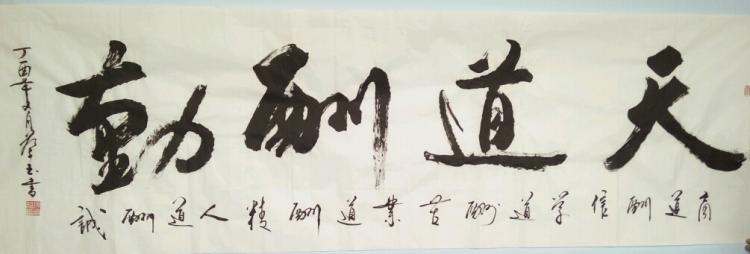 天道酬勤
商道酬信学道酬苦業道酬精人道酬誠
丁酉年月書